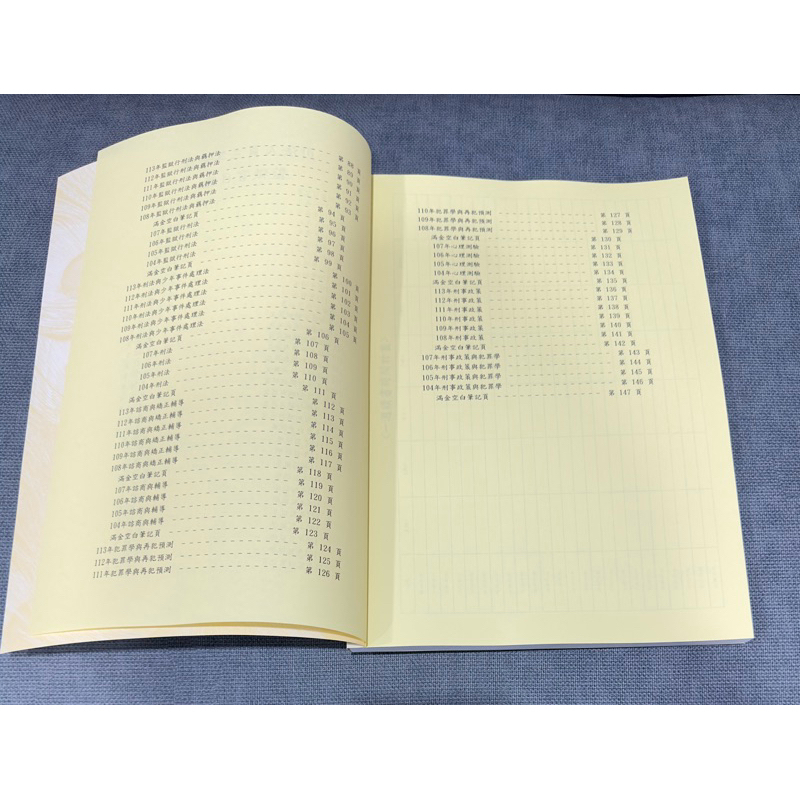 113年監獄行刑法與羈押法 第 88 頁
112年監獄行刑法與羈押法 第 89 頁
111年監獄行刑法與羈押法 第 90 頁
110年監獄行刑法與羈押法 第 91 頁
109年監獄行刑法與羈押法 第 92 頁
108年監獄行刑法與羈押法 第 93 頁
滿金空白筆記頁 第 94 頁
107年監獄行刑法 第 95 頁
106年監獄行刑法 第 96 頁
105年監獄行刑法 第 97 頁
104年監獄行刑法 第 98 頁
滿金空白筆記頁 第 99 頁
113年刑法與少年事件處理法 第 100 頁
112年刑法與少年事件處理法 第 101 頁
111年刑法與少年事件處理法 第 102 頁
110年刑法與少年事件處理法 第 103 頁
109年刑法與少年事件處理法 第 104 頁
108年刑法與少年事件處理法 第 105 頁
滿金空白筆記頁 第 106 頁
107年刑法 第 107 頁
106年刑法 第 108 頁
105年刑法 第 109 頁
104年刑法 第 110 頁
滿金空白筆記頁 第 111 頁
113年諮商與矯正輔導 第 112 頁
112年諮商與矯正輔導 第 113 頁
111年諮商與矯正輔導 第 114 頁
110年諮商與矯正輔導 第 115 頁
109年諮商與矯正輔導 第 116 頁
108年諮商與矯正輔導 第 117 頁
滿金空白筆記頁 第 118 頁
107年諮商與輔導 第 119 頁
106年諮商與輔導 第 120 頁
105年諮商與輔導 第 121 頁
104年諮商與輔導 第 122 頁
滿金空白筆記頁 第 123 頁
113年犯罪學與再犯預測 第 124 頁
112年犯罪學與再犯預測 第 125 頁
111年犯罪學與再犯預測 第 126 頁
110年犯罪學與再犯預測 第 127 頁
109年犯罪學與再犯預測 第 128 頁
108年犯罪學與再犯預測 第 129 頁
滿金空白筆記頁 第 130 頁
107年心理測驗 第 131 頁
106年心理測驗 第 132 頁
105年心理測驗 第 133 頁
104年心理測驗 第 134 頁
滿金空白筆記頁 第 135 頁
113年刑事政策 第 136 頁
112年刑事政策 第 137 頁
111年刑事政策 第 138 頁
110年刑事政策 第 139 頁
109年刑事政策 第 140 頁
108年刑事政策 第 141 頁
滿金空白筆記頁 第 142 頁
107年刑事政策與犯罪學 第 143 頁
106年刑事政策與犯罪學 第 144 頁
105年刑事政策與犯罪學 第 145 頁
104年刑事政策與犯罪學 第 146 頁
滿金空白筆記頁 第 147 頁